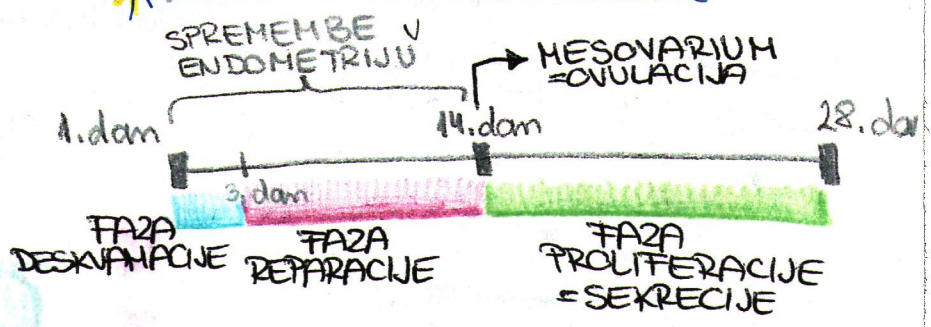 SPREMEMBE V
ENDOMETRIJU
MESOVARIUM
=OVULACIJA
1. dan
14. dan
28. dan
3. dan
FAZA
DESKVAMACIJE
FAZA
REPARACIJE
FAZA
PROLIFERACIJE
=SEKRECIJE